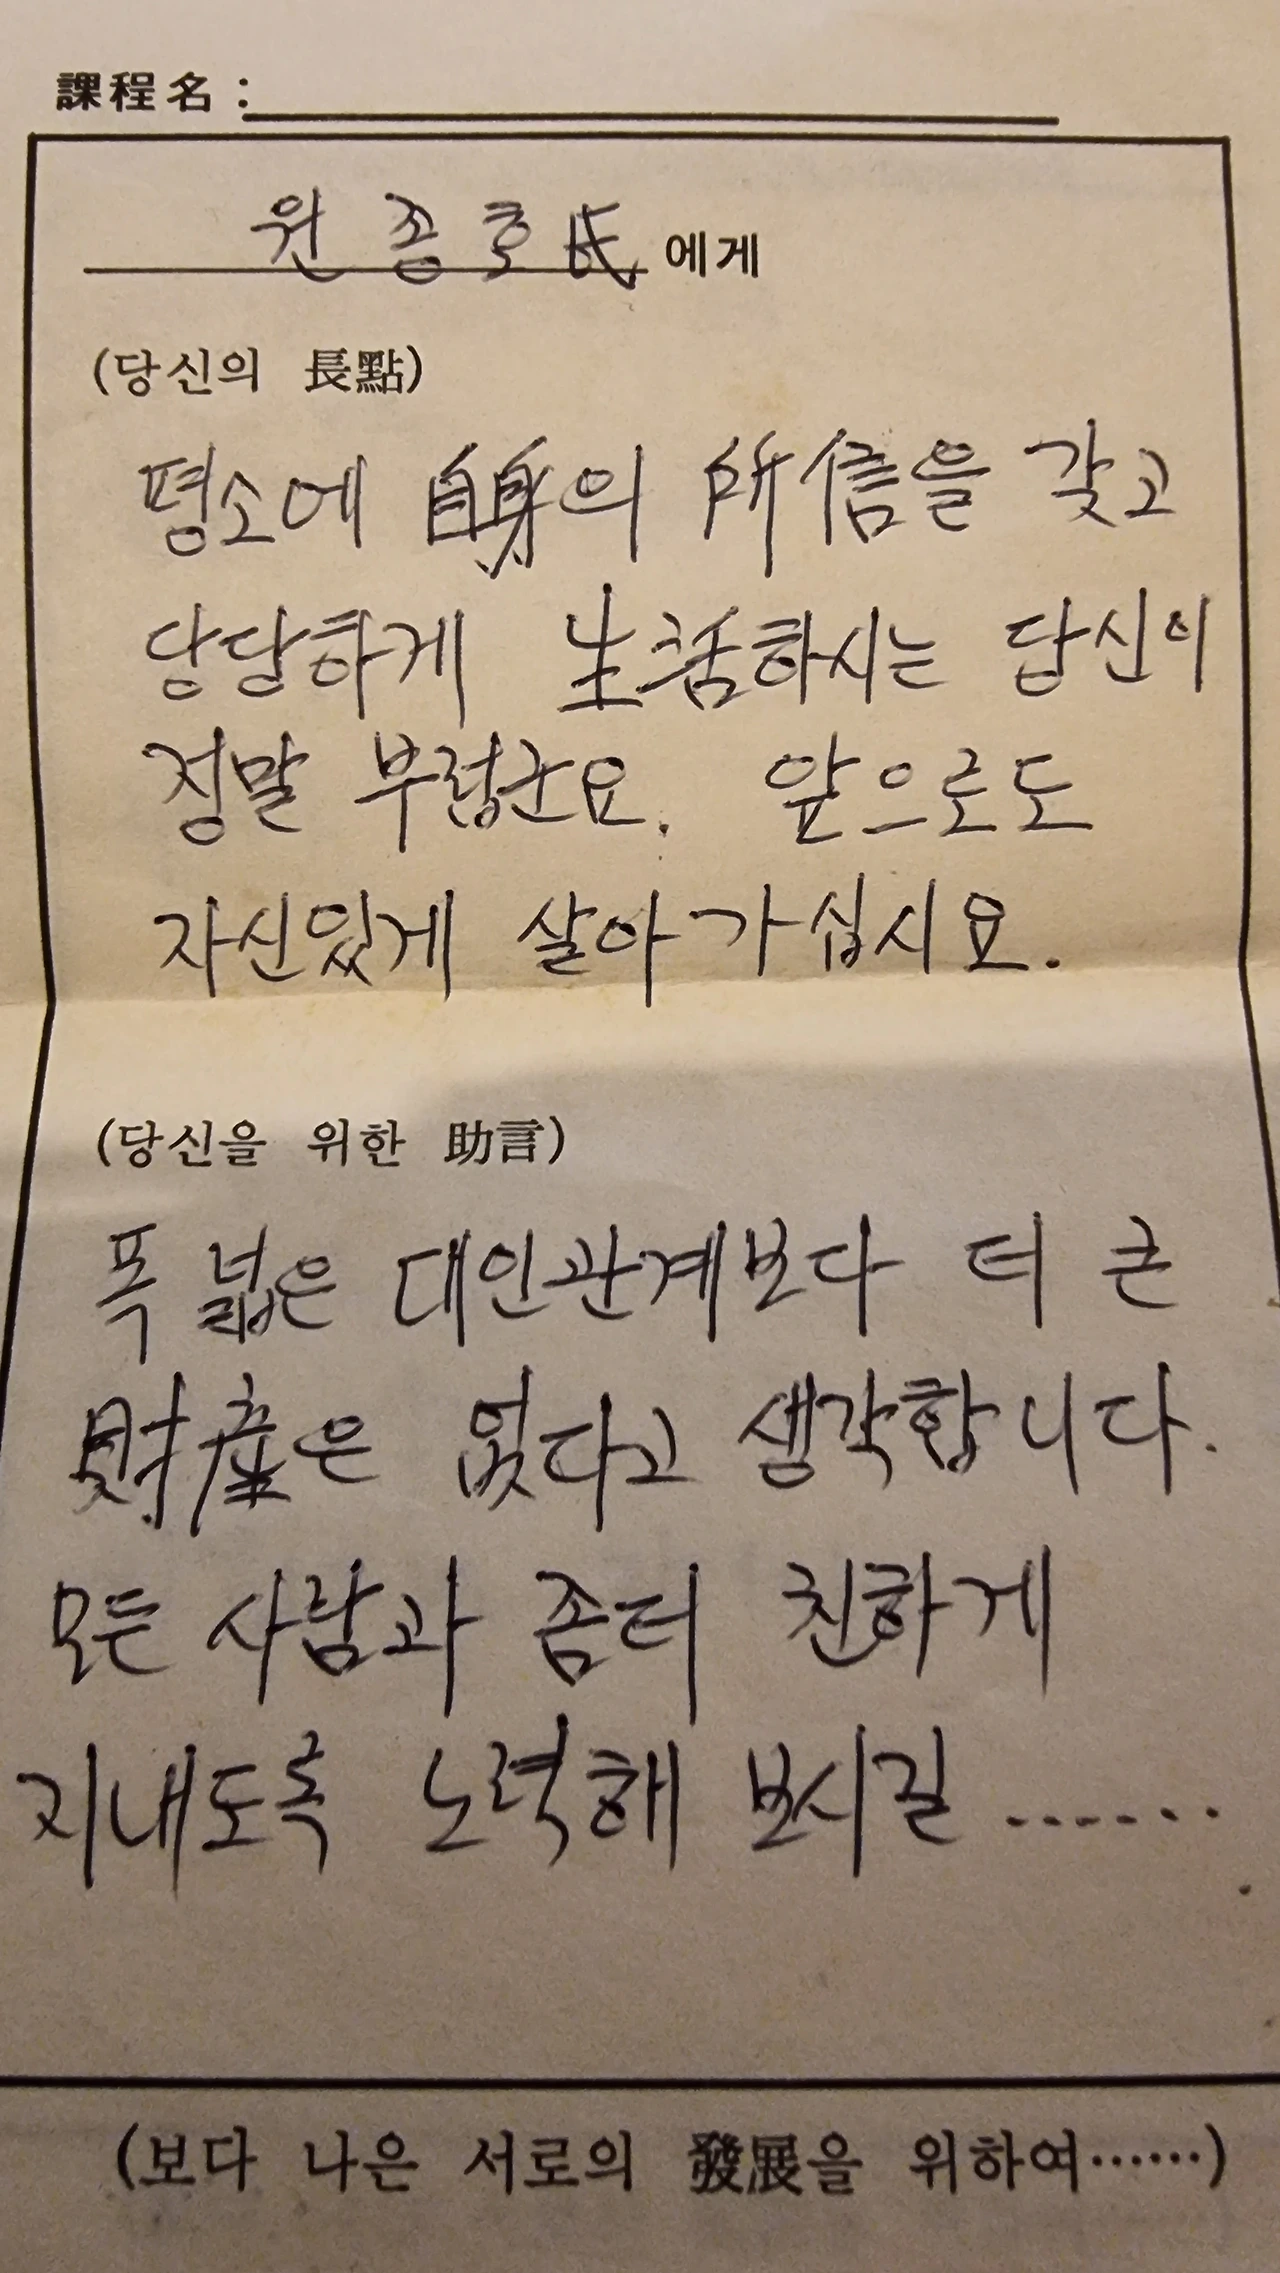 課程名 :
원종호氏 에게
(당신의 長點)
평소에 自身의 所信을 갖고
당당하게 生活하시는 당신이
정말 부럽군요. 앞으로도
자신있게 살아가십시요.
(당신을 위한 助言)
폭 넓은 대인관계보다 더 큰
財産은 없다고 생각합니다.
모든 사람과 좀더 친하게
지내도록 노력해 보시길 ......
(보다 나은 서로의 發展을 위하여……)